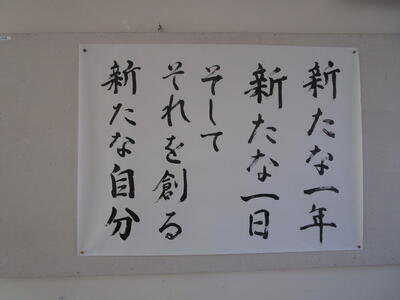 新たな一年
新たな一日
そして
それを創る
新たな自分